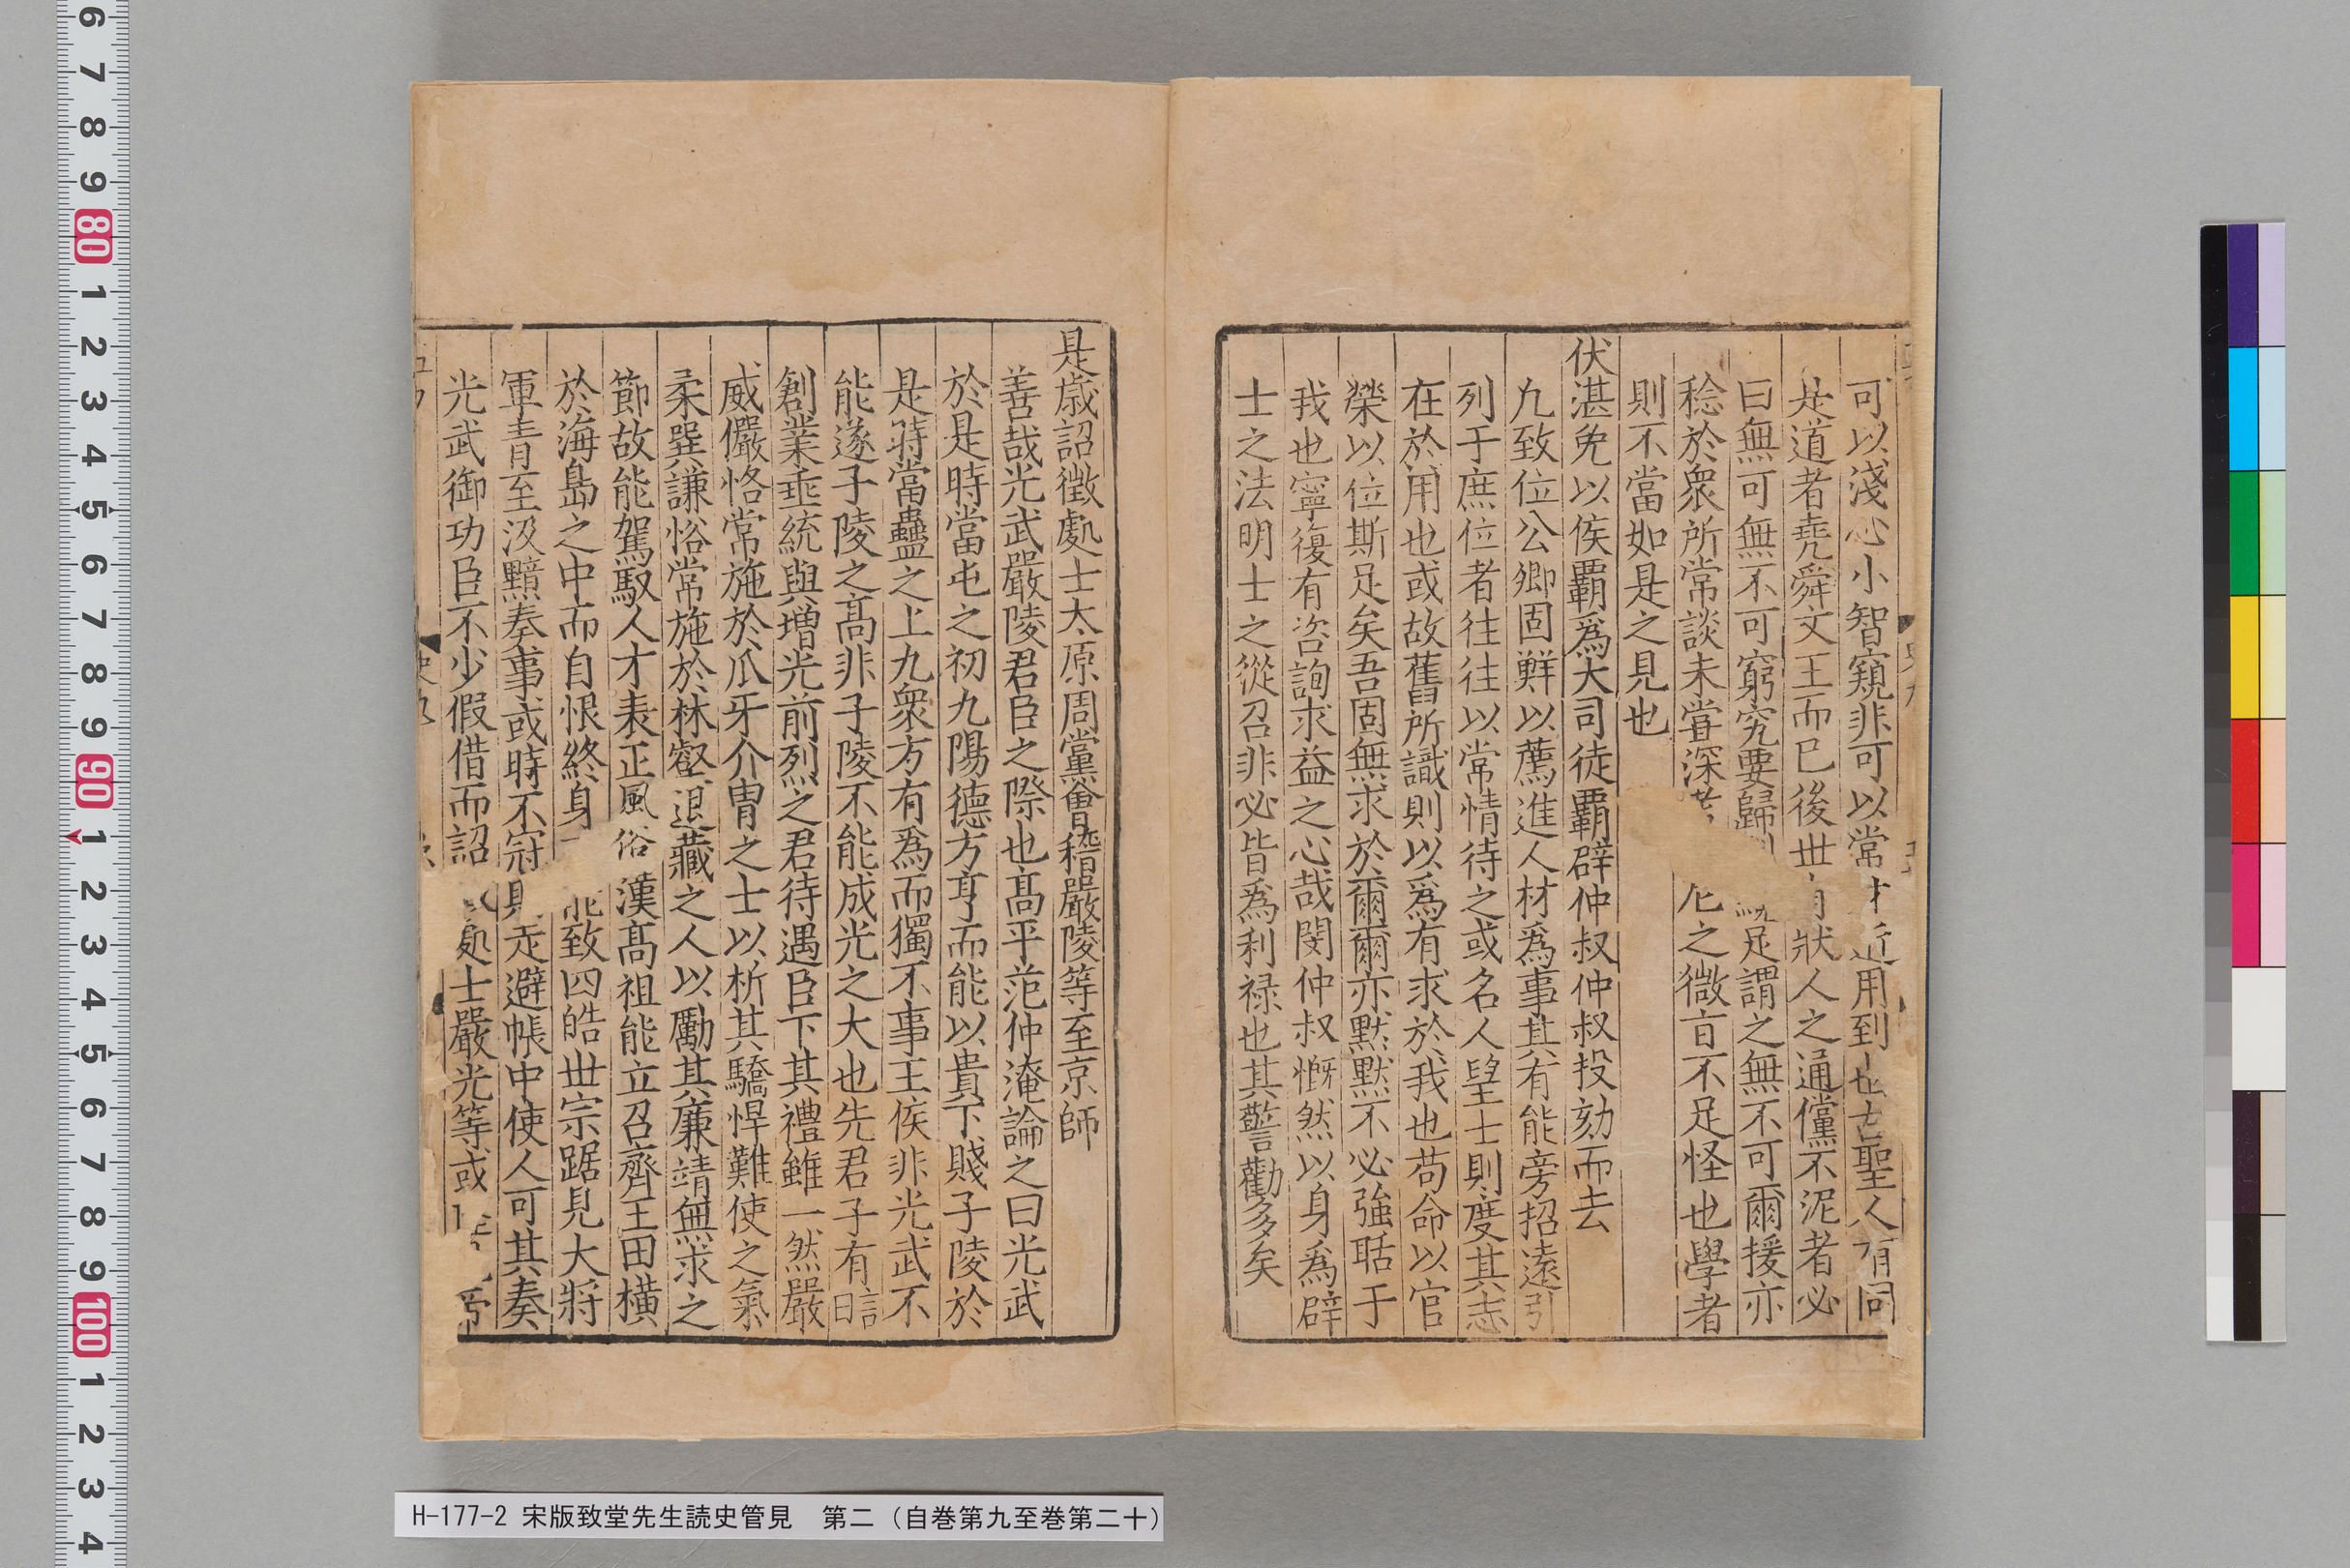 可以淺心小智窺非可以常才近用到也古聖人有同
是道者堯舜文王而已後世有狀人之通儻不泥者必
曰無可無不可窮究要歸足謂之無不可爾援亦
稔於衆所常談未甞深尼之微言不足怪也學者
則不當如是之見也
伏湛免以侯霸爲大司徒霸辟仲叔仲叔投劾而去
九致位公卿固鮮以薦進人材爲事其有能旁招遠引
列于庶位者往往以常情待之或名人望士則度其志
在於用也或故舊所識則以爲有求於我也苟命以官
榮以位斯足矣吾固無求於爾爾亦默默不必強聒于
我也寧復有咨詢求益之心哉閔仲叔慨然以身爲辟
士之法明士之從召非必皆爲利禄也其警勸多矣
是歳詔徴處士太原周黨會稽嚴陵等至京師
善哉光武嚴陵君臣之際也高平范仲淹論之曰光武
於是時當屯之初九陽德方亨而能以貴下賤子陵於
是時當蠱之上九衆方有爲而獨不事王侯非光武不
能遂子陵之高非子陵不能成光之大也先君子有言曰
創業垂統與增光前烈之君待遇臣下其禮雖一然嚴
威儼恪常施於爪牙介胄之士以析其驕悍難使之氣
柔巽謙裕常施於林壑退藏之人以勵其廉靖無求之
節故能駕馭人才表正風俗漢高祖能立召齊王田橫
於海島之中而自恨終身能致四皓世宗踞見大將
軍青至汲黯奏事或時不冠走避帳中使人可其奏
光武御功臣不少假借而詔處士嚴光等或
H-177-2 宋版致堂先生読史管見 第二 (自巻第九至巻第二十)
6 7 8 9 80 1 2 3 4 5 6 7 8 9 90 1 2 3 4 5 6 7 8 9 100 1 2 3 4